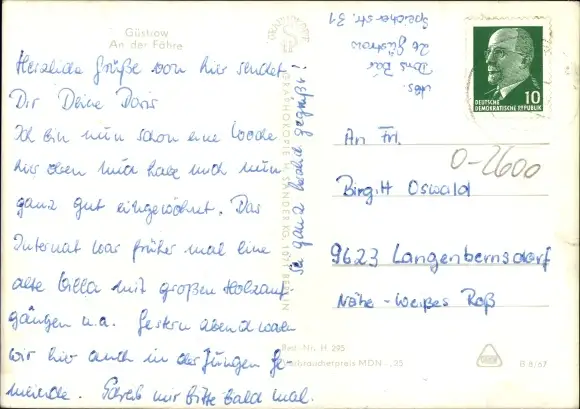 Güstrow
An der Fähre
Herzliche Grüße von hier sendet
Dir Deine Doris
Ich bin nun schon eine Woche
hier oben und habe mich nun
ganz gut eingewöhnt. Das
Internat war früher mal eine
alte Villa mit großen Holzauf
gängen u.a. Gestern abend waren
wir hier auch in der Jungen Ge-
meinde. Schreib mir bitte bald mal.
Sei ganz herzlich gegrüßt!
Abs.
Doris
26 Güstrow
Speicherstr. 31
DEUTSCHE
DEMOKRATISCHE REPUBLIK
10
An Frl.
0-2600
Birgit Oswald
9623 Langenbernsdorf
Nähe - Weißes Roß
Best.-Nr. H. 295
Verbraucherpreis MDN -,35
B 8/67